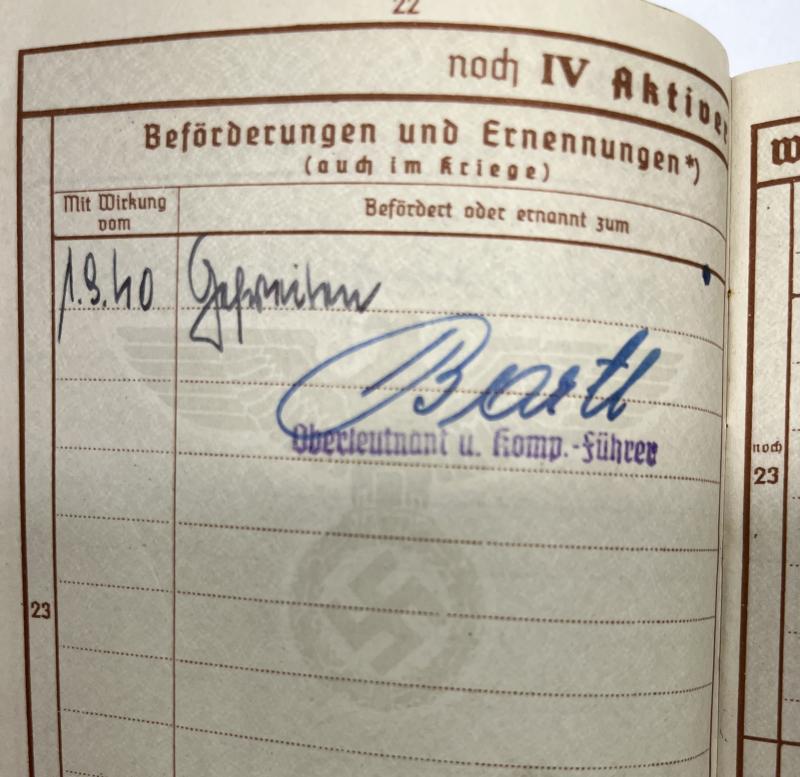 22
noch IV Aktiver
Beförderungen und Ernennungen*)
(auch im Kriege)
Mit Wirkung vom
Befördert oder ernannt zum
1.9.40 Gefreiten
Bartl
Oberleutnant u. Komp.-Führer
23
W
noch
23